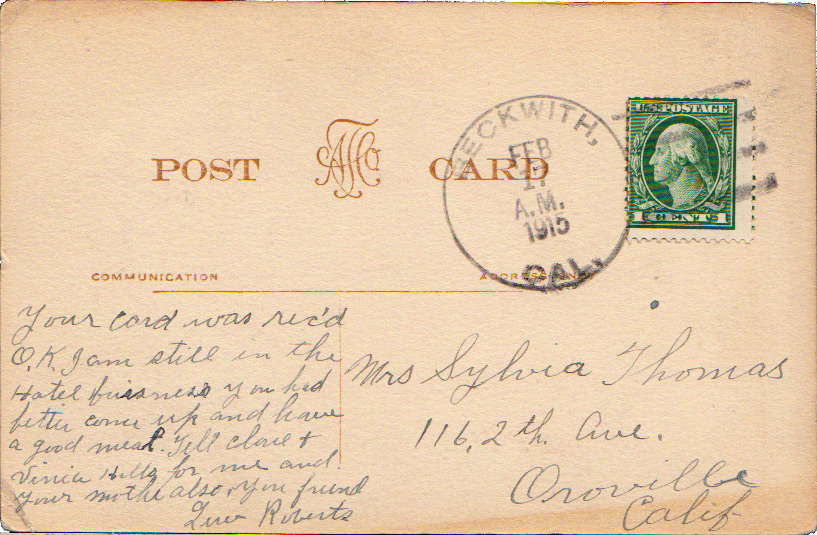 POST CARD
BECKWITH,
FEB
17
A.M.
1915
CAL.
U.S. POSTAGE
1 CENT 1
COMMUNICATION
Your card was rec'd
O.K. I am still in the
Hotel buisness you had
better come up and have
a good meal. Tell &
Vinia Hello for me and
Your mothe also, You friend
Roberts
Mrs Sylvia Thomas
116, 2th. Ave.
Oroville
Calif